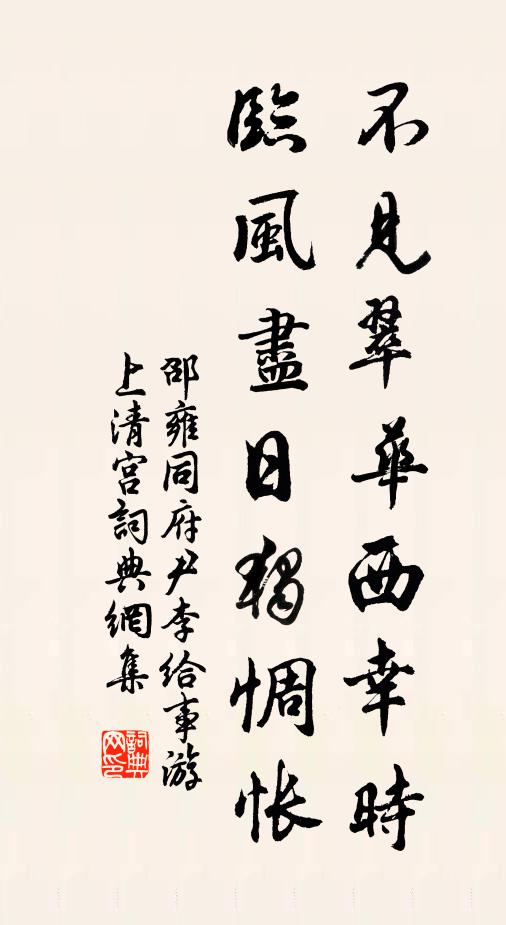 不見翠華西幸時
臨風盡日獨惆悵
邵雍同府尹李給事游
上清宮詞典網集
詞典网印